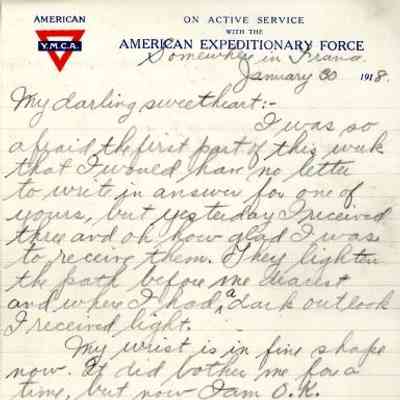 AMERICAN
Y.M.C.A.
ON ACTIVE SERVICE
WITH THE
AMERICAN EXPEDITIONARY FORCE
Somewhere in France.
January 30 1918.
My darling sweetheart:-
I was so
afraid the first part of this week
that I would have no letter
to write in answer for one of
yours, but yesterday I received
three and oh how glad I was
to receive them. They lighten
the path before me dearest
and where I had a dark outlook
I received light.
My wrist is in fine shape
now. It did bother me for a
time, but now I am O.K.